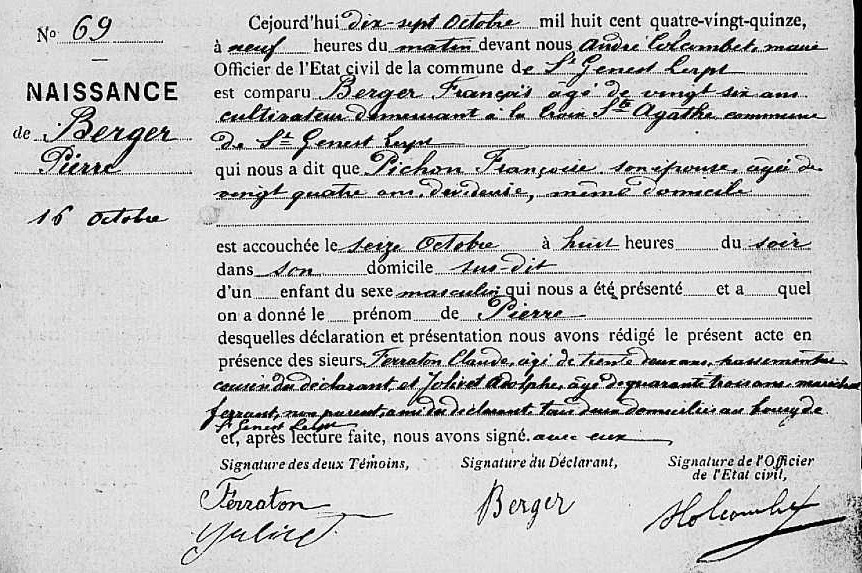 No 69
NAISSANCE
de Berger
Pierre
16 octobre
Cejourd'hui dix-sept Octobre mil huit cent quatre-vingt-quinze,
à neuf heures du matin devant nous André Colombet, maire
Officier de l'Etat civil de la commune de St Genest Lerpt
est comparu Berger François âgé de vingt six ans
cultivateur demeurant à la Croix Ste Agathe commune
de St Genest Lerpt
qui nous a dit que Pichon Françoise son épouse, âgée de
vingt quatre ans, devideuse, même domicile
est accouchée le seize Octobre à huit heures du soir
dans son domicile sus-dit
d'un enfant du sexe masculin qui nous a été présenté et a quel
on a donné le prénom de Pierre
desquelles déclaration et présentation nous avons rédigé le présent acte en
présence des sieurs Ferraton Claude, âgé de trente deux ans, passementier
cousin du déclarant, et Jolivet Adolphe, âgé de quarante trois ans, maréchal
ferrant, non parent, ami du déclarant tous deux domiciliés au bourg de
St Genest Lerpt
et, après lecture faite, nous avons signé. avec eux
Signature des deux Témoins, Signature du Déclarant, Signature de l'Officier
de l'Etat civil,
Ferraton Berger